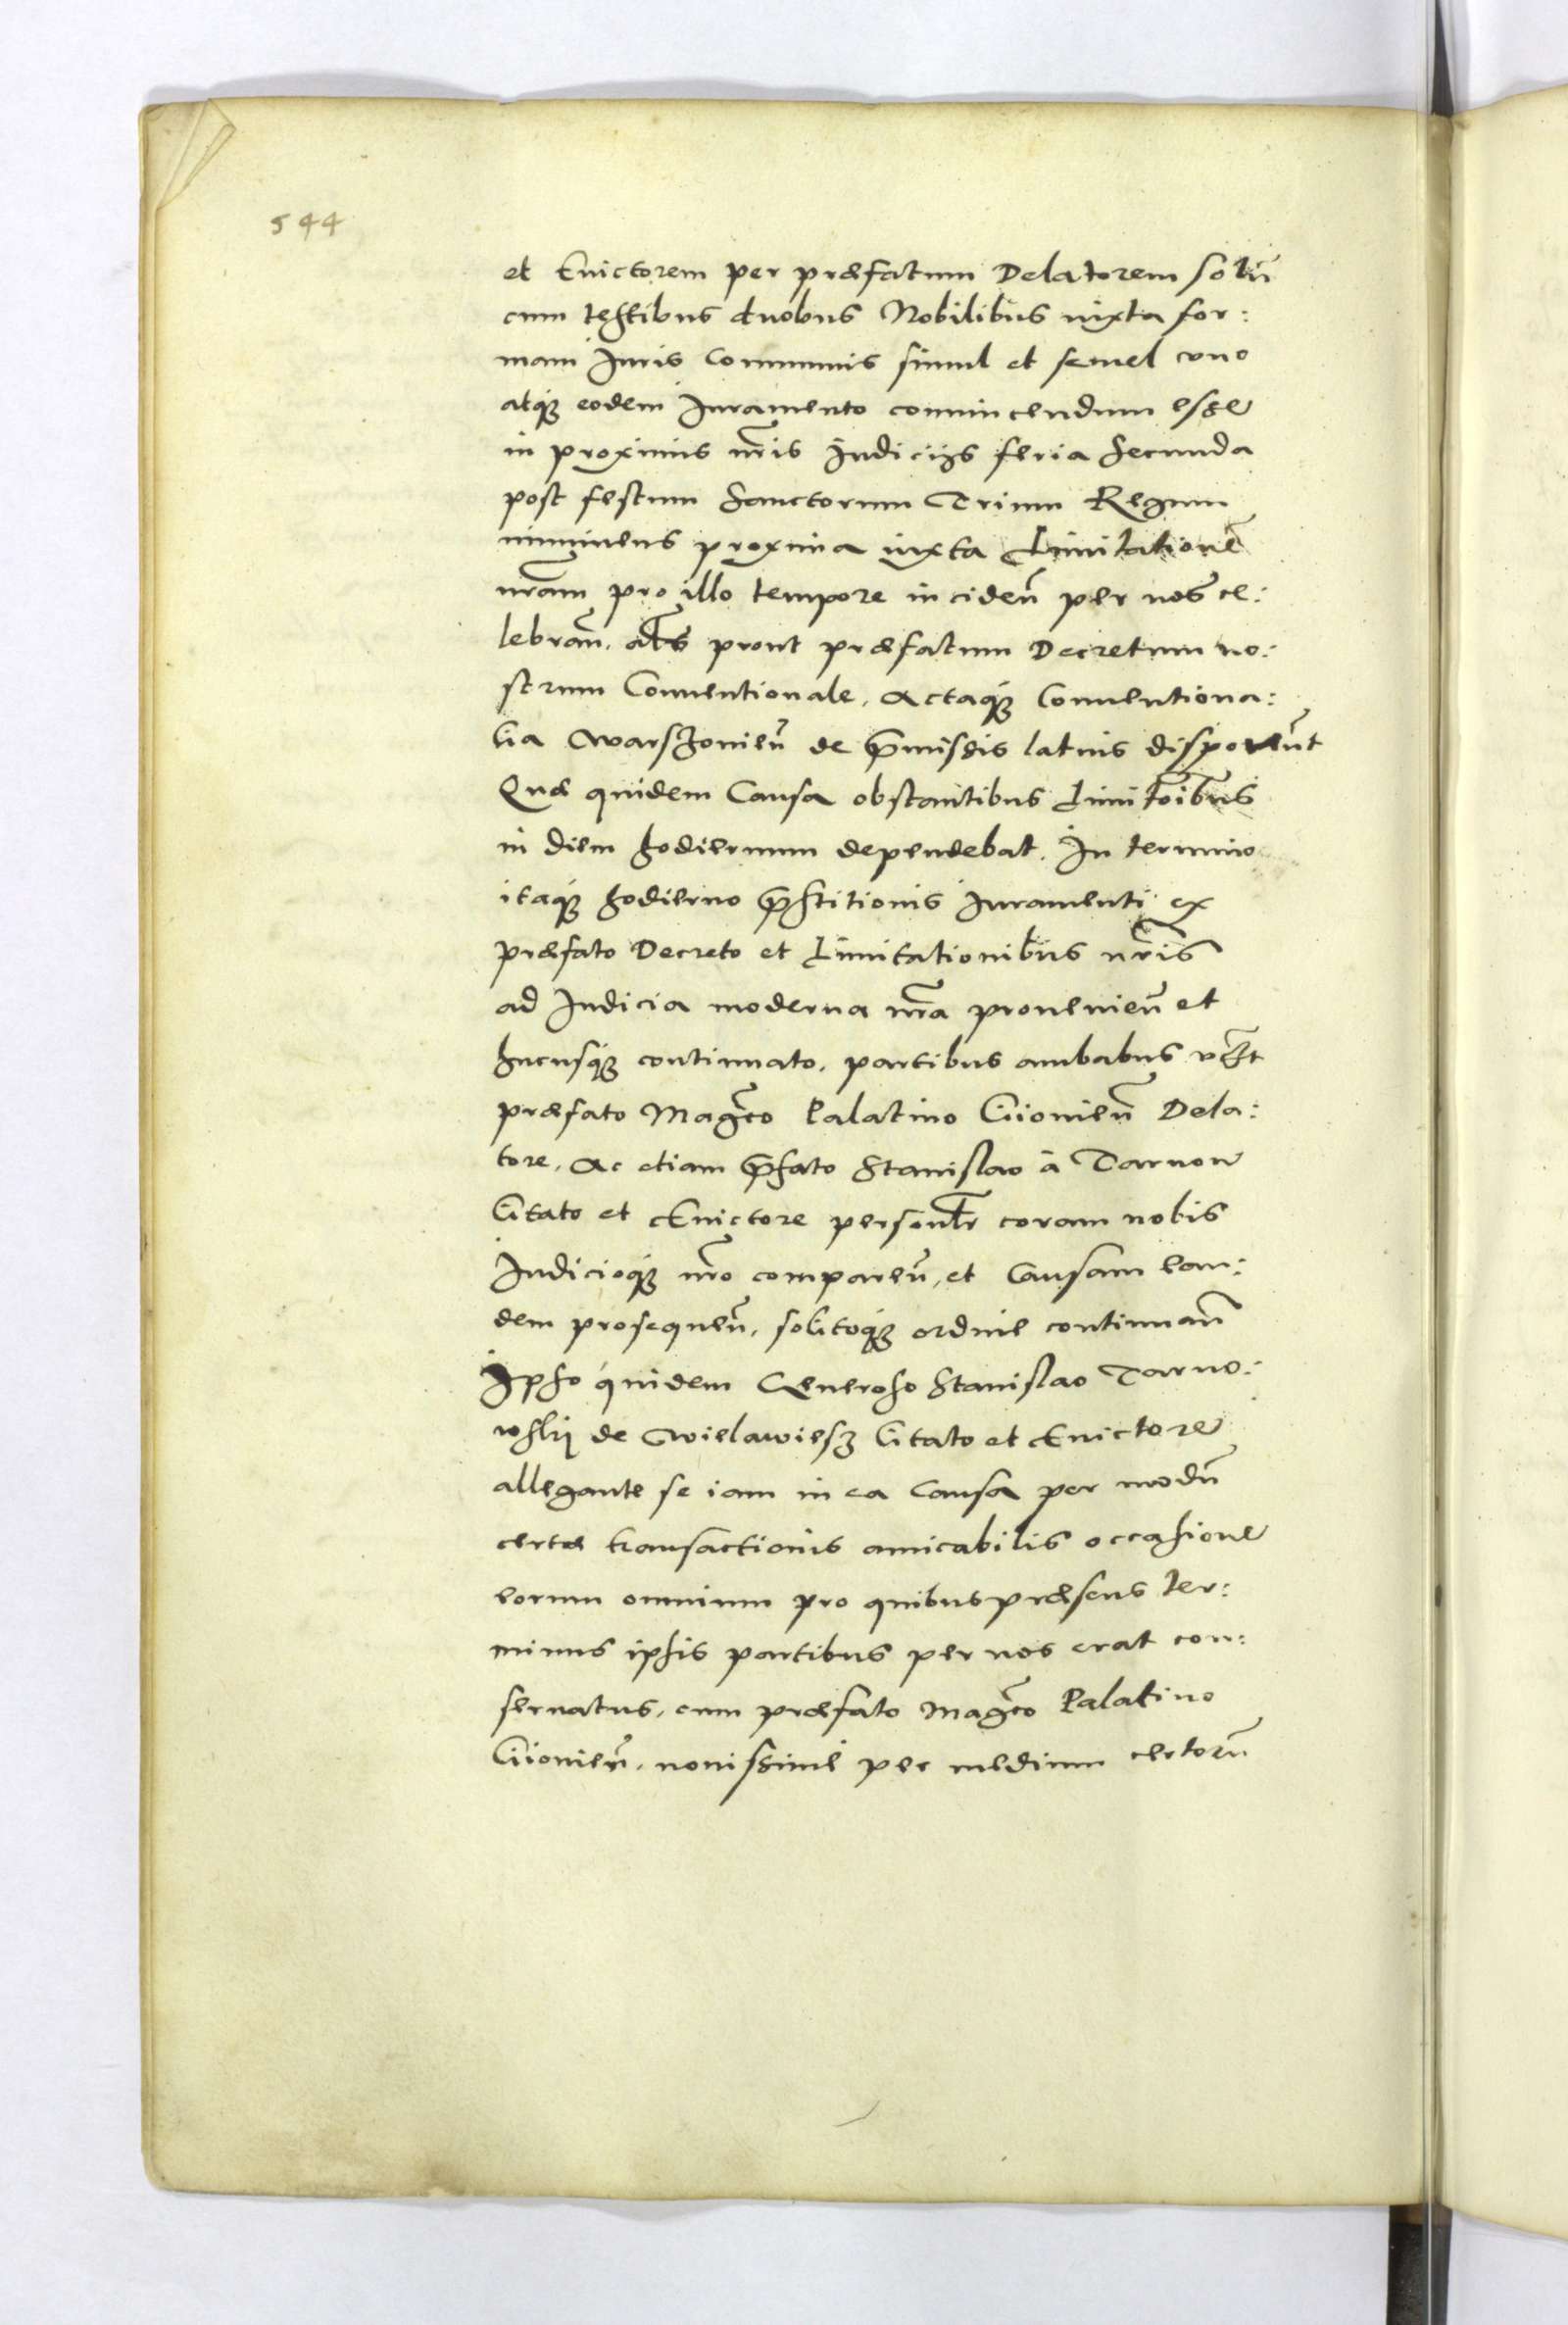 544
et Euictorem per præfatum Delatorem solũ
cum testibus duobus Nobilibus iuxta for:
mam Juris Communis simul et semel vno
atq́ue eodem Juramento conuincendum esse
in proximis nr̃is Judicijs feria Secunda
post festum Sanctorum Trium Regum
imminens proxima iuxta Limitationẽ
nr̃am pro illo tempore inciden̄ per nos ce:
lebran̄. prout præfatum Decretum no:
strum Conuentionale, Actaq́ue Conuentiona:
lia Warschouien̄ de p̃missis latius disponũt
Quæ quidem Causa obstantibus Limitõibus
in diem hodiernum dependebat. In termino
itaq́ue hodierno p̃stitionis Juramenti ex
præfato Decreto et Limitationibus nr̃is
ad Judicia moderna nr̃a prouenien̄ et
hucusq́ue continuato, partibus ambabus vt̃
præfato Mag̃co Palatino Kiiouien̄ Dela:
tore, Ac etiam p̃fato Stanislao à Tarnow
Citato et Euictore personlr̃ coram nobis
Judicioq́ue nr̃o comparen̄, et Causam ean:
dem prosequen̄, solitoq́ue ordine continuan̄
Ipso quidem Generoso Stanislao Tarno:
wskij de Wielawiesz Citato et Euictore
allegante se iam in ea Causa per modũ
certæ transactionis amicabilis occasione
eorum omnium pro quibus præsens ter:
minus ipsis partibus per nos erat con:
seruatus, cum præfato Mag̃co Palatino
Kiiouien̄, nouissimè per medium certorũ